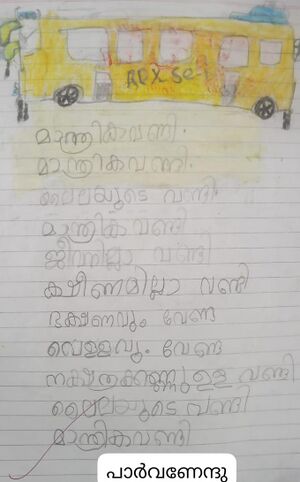 മാന്ത്രികവണ്ടി.
മാന്ത്രികവണ്ടി.
ലൈലയുടെ വണ്ടി.
മാന്ത്രിക വണ്ടി
വണ്ടി
ക്ഷീണമില്ലാ വണ്ടി
ഭക്ഷണവും വേണ്ട
വെള്ളവും വേണ്ട
നക്ഷത്രക്കണ്ണുള്ള വണ്ടി
ലൈലയുടെ വണ്ടി
മാന്ത്രികവണ്ടി
പാർവണേന്ദു